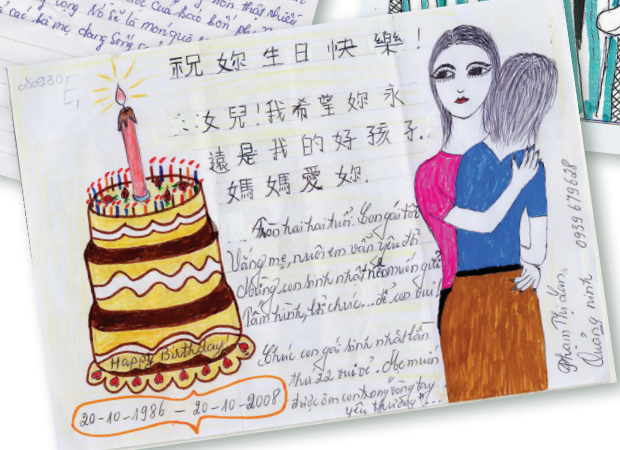 080930
E,
祝妳生日快樂!
女兒!我希望妳永
遠是我的好孩子.
媽媽愛妳.
Tròn hai hai tuổi. Con gái tôi
Vắng mẹ, nuôi em vẫn yêu đời
Mừng con sinh nhật mẹ muốn gửi
Tấm hình, lời chúc... để con vui!
Chúc con gái sinh nhật lần
thứ 22 vui vẻ. Mẹ muốn
được ôm con trong vòng tay
yêu thương"...
Happy Birthday!
20-10-1986 – 20-10-2008
Phạm Thị Lan,
Quảng ninh
0939 679628